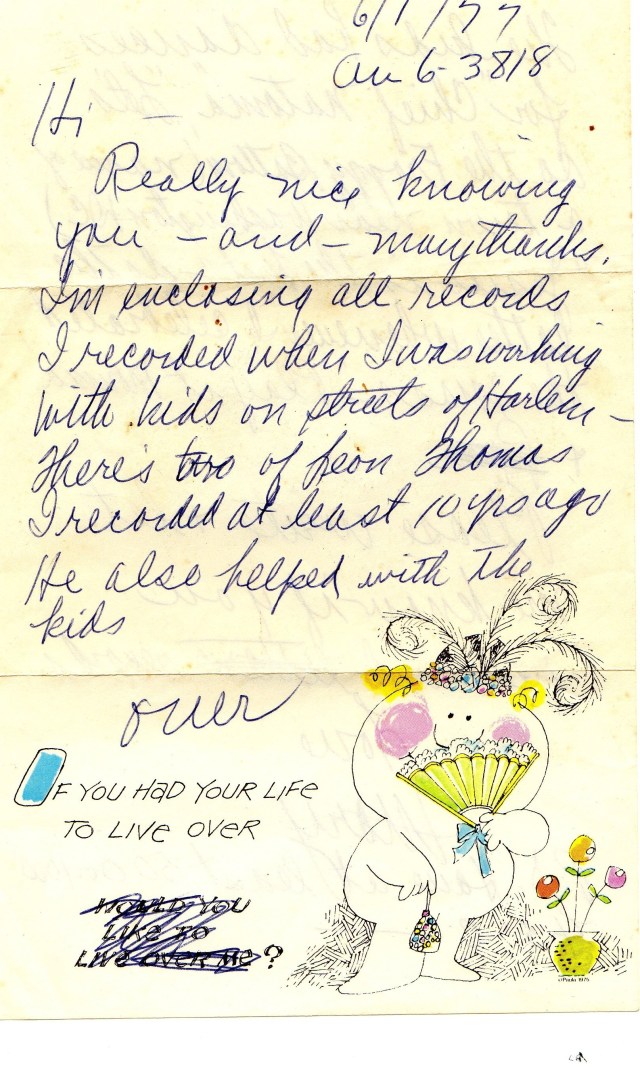 6/1/77
Au 6-3818
Hi —
Really nice knowing
you — and — many thanks.
I'm enclosing all records
I recorded when I was working
with kids on streets of Harlem —
There's two of Leon Thomas
I recorded at least 10 yrs ago
He also helped with the
kids
over
IF YOU HAD YOUR LIFE
TO LIVE OVER
WOULD YOU
LIKE TO
LIVE OVER ME?